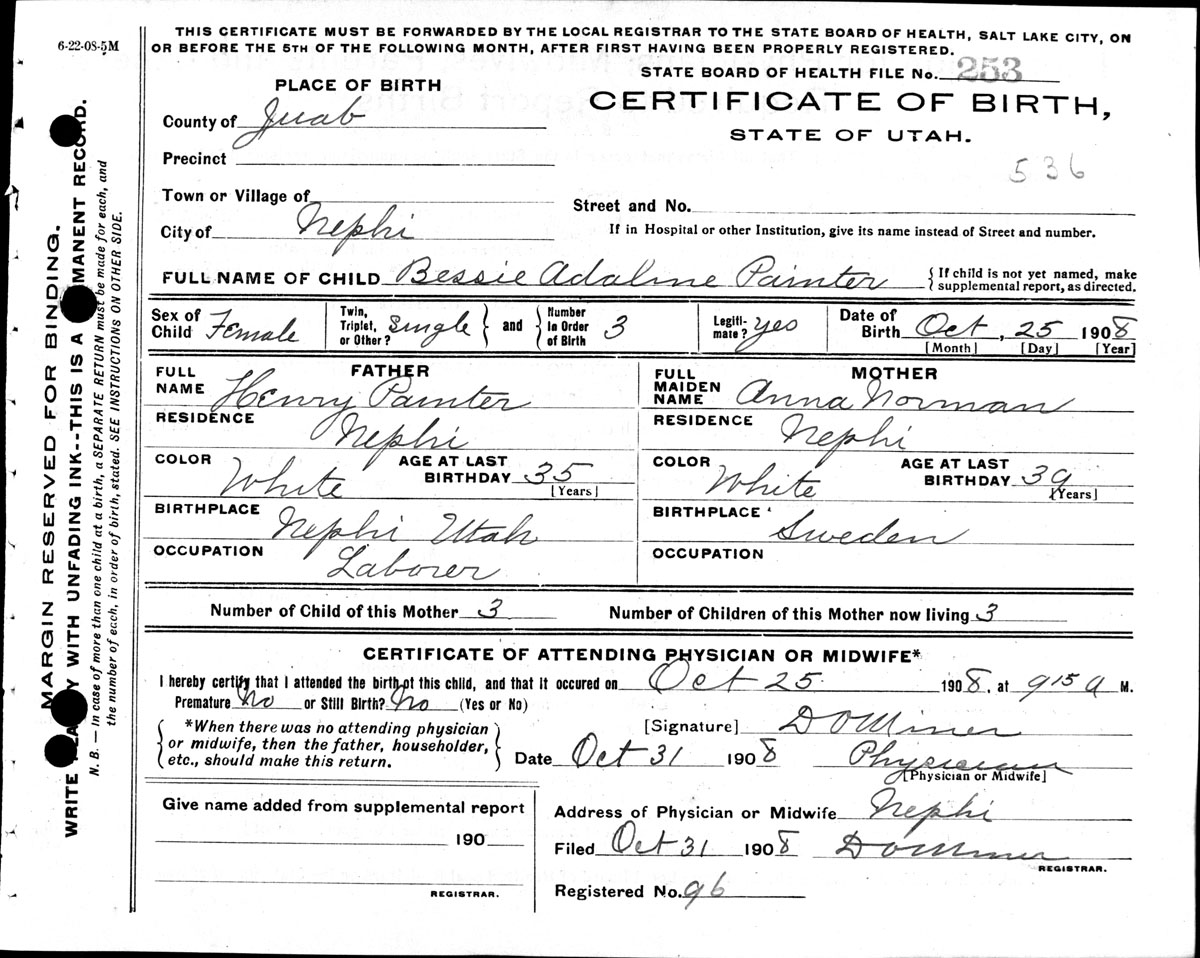 6-22-08-5M
THIS CERTIFICATE MUST BE FORWARDED BY THE LOCAL REGISTRAR TO THE STATE BOARD OF HEALTH, SALT LAKE CITY, ON
OR BEFORE THE 5TH OF THE FOLLOWING MONTH, AFTER FIRST HAVING BEEN PROPERLY REGISTERED.
STATE BOARD OF HEALTH FILE No. 253
PLACE OF BIRTH
CERTIFICATE OF BIRTH,
STATE OF UTAH.
County of Juab
Precinct
536
Town or Village of
Street and No.
City of Nephi
If in Hospital or other Institution, give its name instead of Street and number.
FULL NAME OF CHILD Bessie Adaline Painter { If child is not yet named, make
supplemental report, as directed.
Sex of Child Female Twin, Triplet, or Other? Single } and { Number In Order of Birth 3 Legiti- mate? yes Date of Birth Oct, 25 1908
[Month] [Day] [Year]
FATHER
FULL NAME Henry Painter
RESIDENCE Nephi
COLOR White AGE AT LAST BIRTHDAY 35
[Years]
BIRTHPLACE Nephi Utah
OCCUPATION Laborer
MOTHER
FULL MAIDEN NAME Anna Norman
RESIDENCE Nephi
COLOR White AGE AT LAST BIRTHDAY 39
[Years]
BIRTHPLACE Sweden
OCCUPATION
Number of Child of this Mother 3 Number of Children of this Mother now living 3
CERTIFICATE OF ATTENDING PHYSICIAN OR MIDWIFE*
I hereby certify that I attended the birth of this child, and that it occured on Oct 25 1908, at 9 15 A M.
Premature No or Still Birth? No (Yes or No)
{ *When there was no attending physician
or midwife, then the father, householder,
etc., should make this return. }
[Signature]
Date Oct 31 1908 Physician
[Physician or Midwife]
Give name added from supplemental report
190
REGISTRAR.
Address of Physician or Midwife Nephi
Filed Oct 31 1908
REGISTRAR.
Registered No. 96
MARGIN RESERVED FOR BINDING.
WRITE WITH UNFADING INK--THIS IS A PERMANENT RECORD.
N. B. — In case of more than one child at a birth, a SEPARATE RETURN must be made for each, and
the number of each, in order of birth, stated. SEE INSTRUCTIONS ON OTHER SIDE.